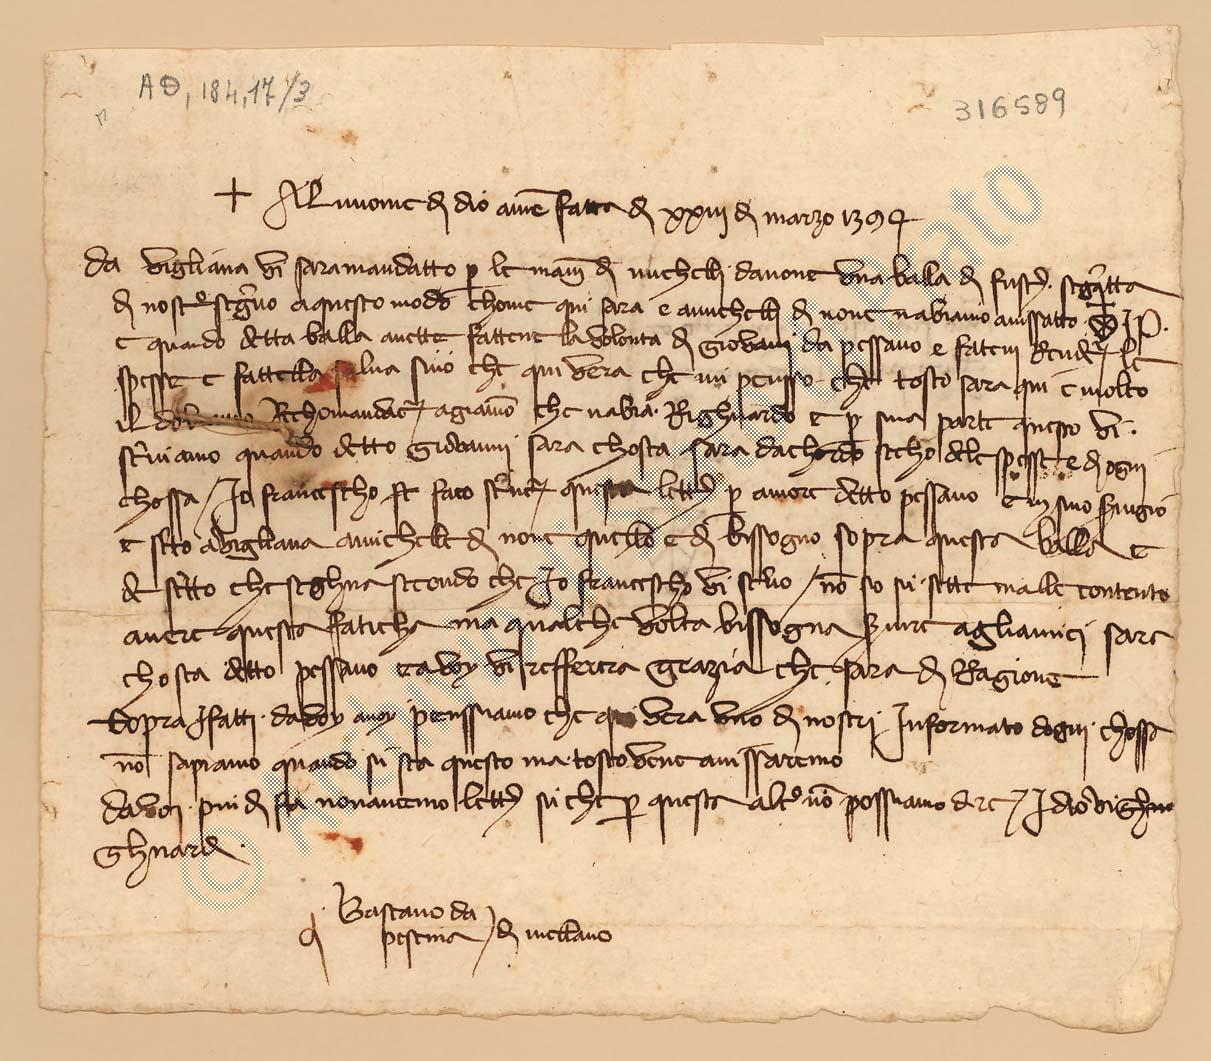 AD, 184,17/3
316589
+ Al nnome di dio ame fatta di xxiii di marzo 1394
da vigliana vi sara mandatto p le mani di michelli davone una balla di fusti segnatta
di nostro segnio a questo modo chome qui sara e a michelli di none n abiamo avissatto
e quando detta balla avette fattene la volonta di giovani da pessano e fatevi
spesse e fattella salva sino che qui vera che mi pensso che tosto sara qui e molto
il Rechomandare agiamo che n abia Righuardo e p sua parte questo vi
scriviamo quando detto giovanni sara chosta sara dachordo secho delle spesse e di ogni
chossa / Io francescho faco scrivere questa lettera p amore detto pessano e in suo servigio
e scrito a vigliana a michelle di none quello e di bissogno sopra questa balla e
scritto che seghua secondo che Io francescho vi scrivo / no so si sette malle contento
avere questa faticha ma qualche volta bissogna servire agl amici sare
chosta detto pessano e a voy vi refferira grazia che sara di Ragione
Sopra I fatti da voy a noy penssiamo che qui vera uno di nostri Informato dogni chossa
no sapiamo quando si sta questo ma tosto vene avissaremo
da voi piu di fa non avemo lettera si che p questa altro no possiamo dire / Idio vi
ghuardi
Bascano da
pescina / di mellano
© Archivio di Stato Prato